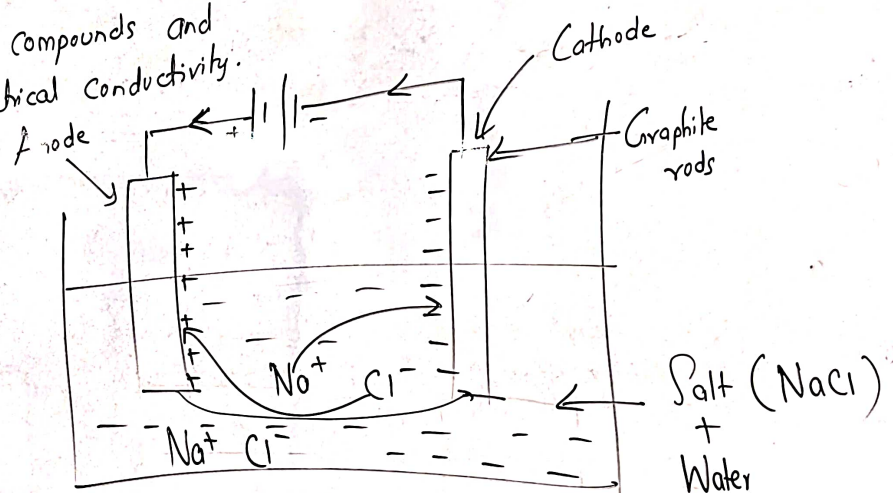 Compounds and
trical Conductivity.
Anode
Cathode
+
-
Graphite
rods
+
+
+
+
+
+
+
-
-
-
-
-
-
-
No+ Cl-
Na+ Cl-
Salt (NaCl)
+
Water